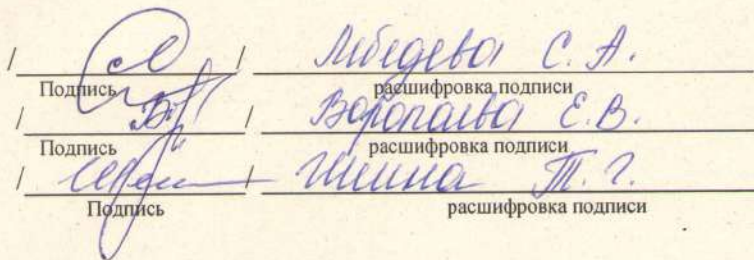 / / Лебедева С. А.
Подпись расшифровка подписи
/ / Воропаева Е. В.
Подпись расшифровка подписи
/ / Т. Г.
Подпись расшифровка подписи